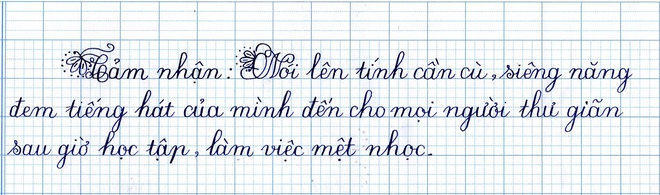 Cảm nhận: Nói lên tính cần cù, siêng năng
đem tiếng hát của mình đến cho mọi người thư giãn
sau giờ học tập, làm việc mệt nhọc.